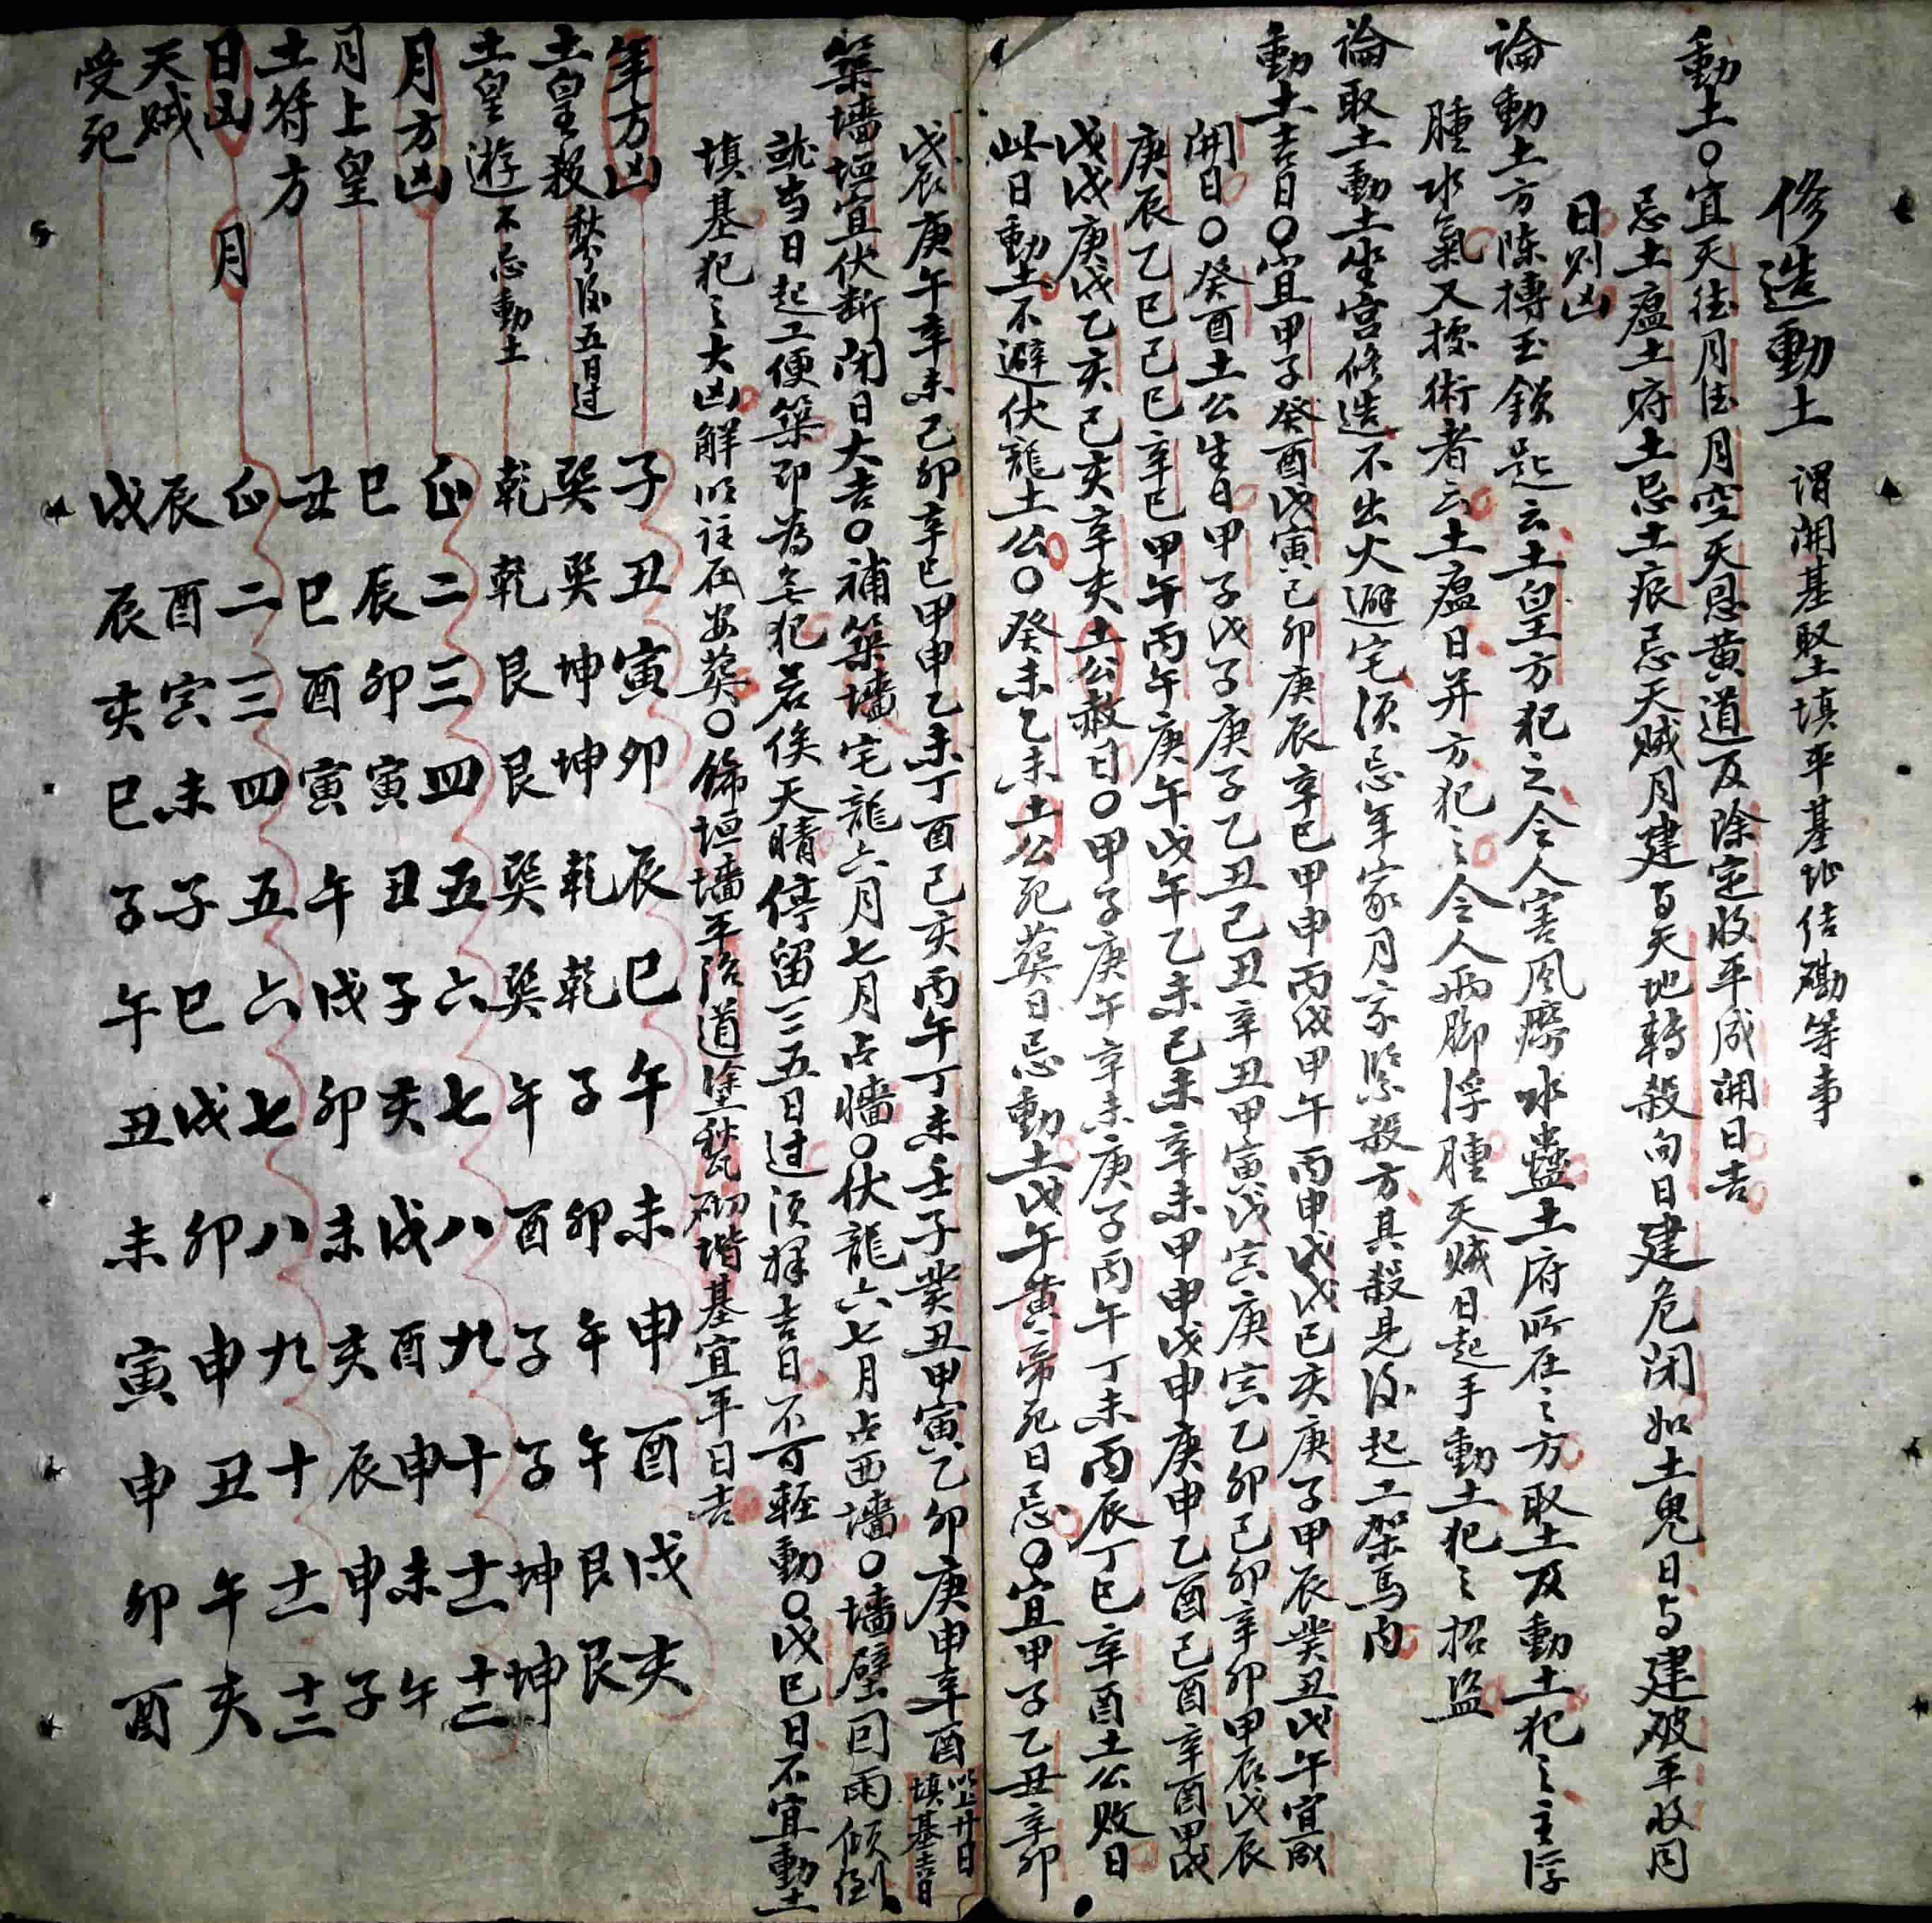 修造動土 謂開基堅土填平基址結磡等事
動土○宜天德月德月空天恩黃道及除定收平成開日吉
忌土瘟土府土忌土痕忌天賊月建与天地轉殺向日建危閉如土鬼日与建破平收同
日則凶
論動土方陳摶玉鎖匙云土皇方犯之令人害風癆水蠱土府所在之方取土及動土犯之主浮
腫水氣又據術者云土瘟日并方犯之令人兩腳浮腫天賊日起手動土犯之招盜
論取土動土坐宮修造不出火避宅須忌年家月家殺方其殺見後起工架馬內
動土吉日○宜甲子癸酉戊寅己卯庚辰辛巳甲申丙戌甲午丙申戊戌己亥庚子甲辰癸丑戊午宜成
開日○癸酉土公生日甲子戊子庚子乙丑己丑辛丑甲寅戊寅庚寅乙卯己卯辛卯甲辰戊辰
庚辰乙巳己巳辛巳甲午丙午庚午戊午乙未己未辛未甲申戊申庚申乙酉己酉辛酉甲戌
戊戌庚戌乙亥己亥辛亥土公赦日○甲子庚午辛未庚子丙午丁未丙辰丁巳辛酉土公敗日
此日動土不避伏龍土公○癸未乙未土公死葬日忌動土戊午黃帝死日忌○宜甲子乙丑辛卯
戊辰庚午辛未己卯辛巳甲申乙未丁酉己亥丙午丁未壬子癸丑甲寅乙卯庚申辛酉 以上廿日填基吉日
築墻垣宜伏斷閉日大吉○補築墻宅龍六月七月占墻○伏龍六七月占西墻○墻壁因雨傾倒
就当日起工便築即為無犯若俟天晴停留三五日过須擇吉日不可輕動○戊巳日不宜動土
填基犯之大凶解明註在安葬○飾垣墻平治道塗甃砌階基宜平日吉
年方凶 子 丑 寅 卯 辰 巳 午 未 申 酉 戌 亥
土皇殺 葬後五日过 巽 巽 坤 坤 乾 乾 子 卯 午 午 艮 艮
土皇遊 不忌動土 乾 乾 艮 艮 巽 巽 午 酉 子 子 坤 坤
月方凶 正 二 三 四 五 六 七 八 九 十 十一 十二
月上皇 巳 辰 卯 寅 丑 子 亥 戌 酉 申 未 午
土符方 丑 巳 酉 寅 午 戌 卯 未 亥 辰 申 子
日凶 月 正 二 三 四 五 六 七 八 九 十 十一 十二
天賊 辰 酉 寅 未 子 巳 戌 卯 申 丑 午 亥
受死 戌 辰 亥 巳 子 午 丑 未 寅 申 卯 酉